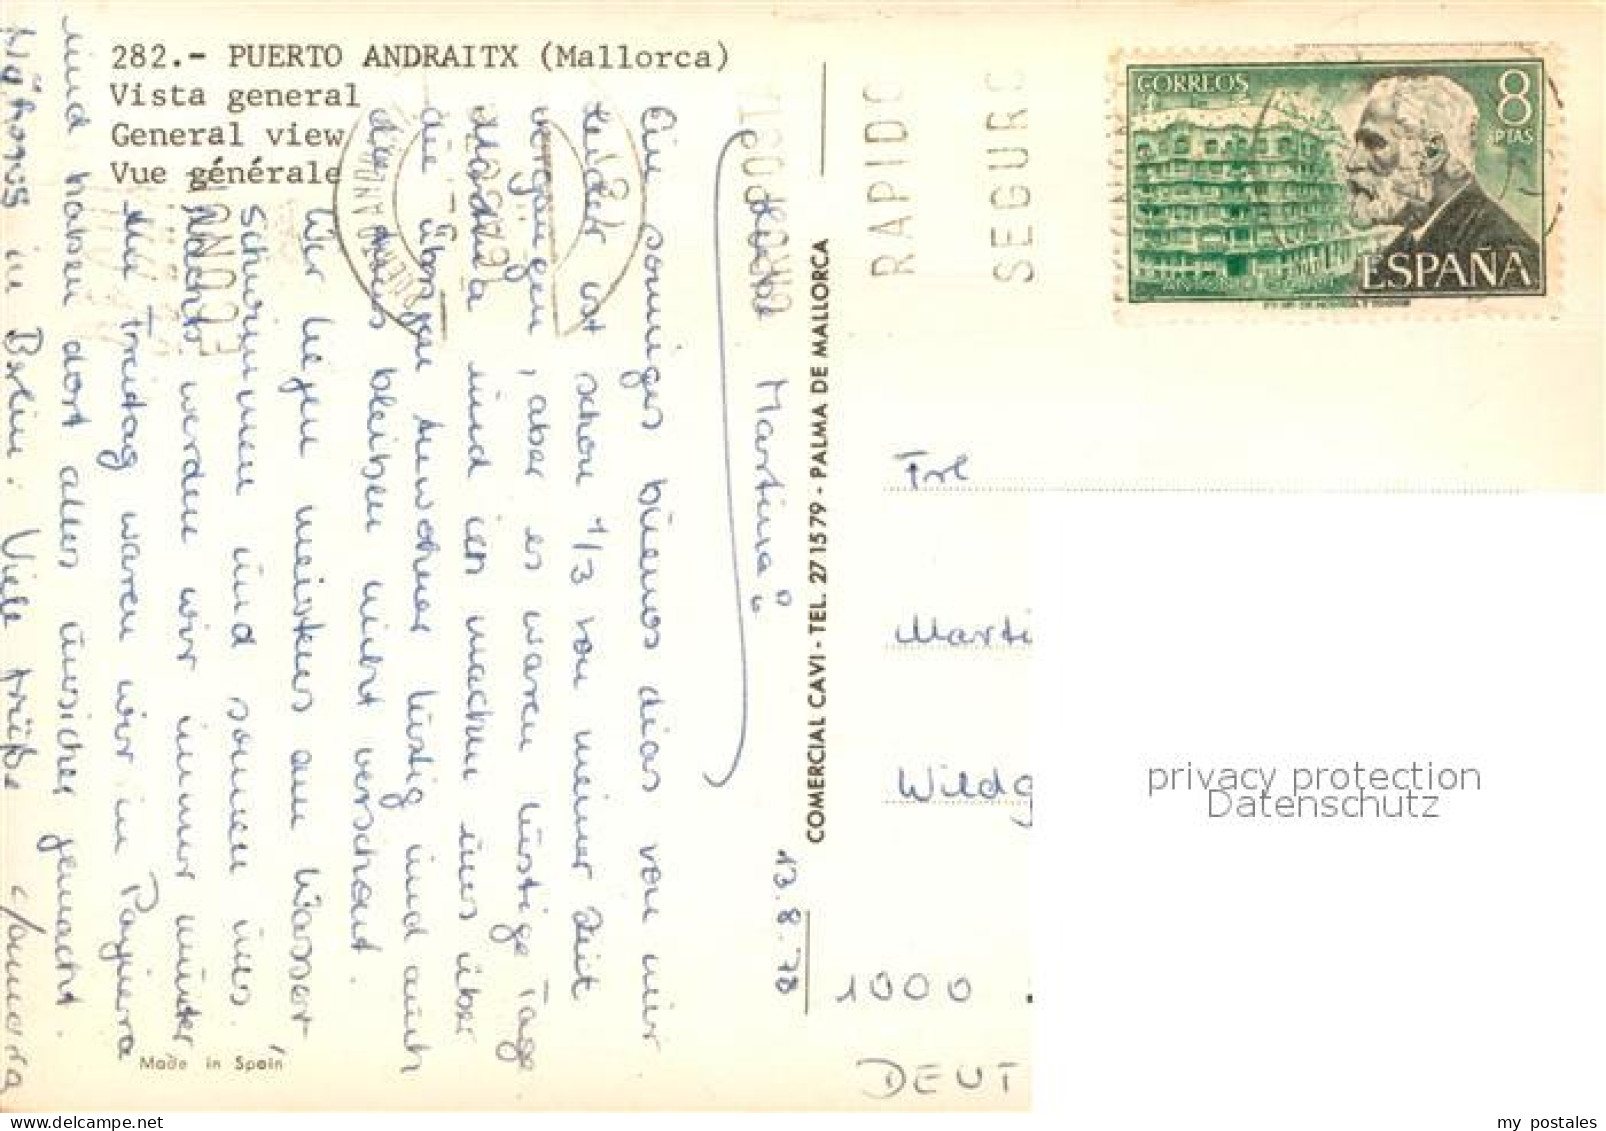 282.- PUERTO ANDRAITX (Mallorca)
Vista general
General view
Vue générale
CORREOS
8
PTAS
ESPAÑA
ANTONIO GAUDI
RAPIDO
SEGURO
COMERCIAL CAVI - TEL. 27 15 79 - PALMA DE MALLORCA
13.8.78
Martina!
Ein sonniges buenos dias von mir
leider ist schon 1/3 von meiner Zeit
vergangen, aber es waren lustige Tage
und ich machen uns über
die übrigen Bewohner lustig und auch
die bleiben nicht verschont.
Wir liegen meistens am Wasser,
schwimmen und sonnen uns.
Nachts werden wir immer munter
Freitag waren wir in Paguera
und haben dort alles unsicher gemacht.
in Berlin. Viele Grüße
Frl
Marti
Wildg
1000
DEUT
Made in Spain
privacy protection
Datenschutz
my postales